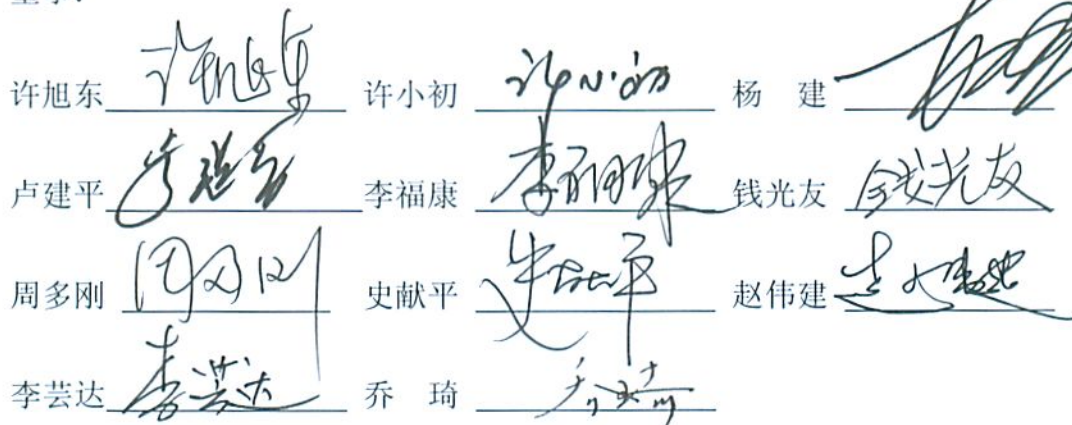 许旭东 许旭东 许小初 许小初 杨 建
卢建平 李福康 李福康 钱光友 钱光友
周多刚 周多刚 史献平 史献平 赵伟建
李芸达 李芸达 乔 琦 乔琦